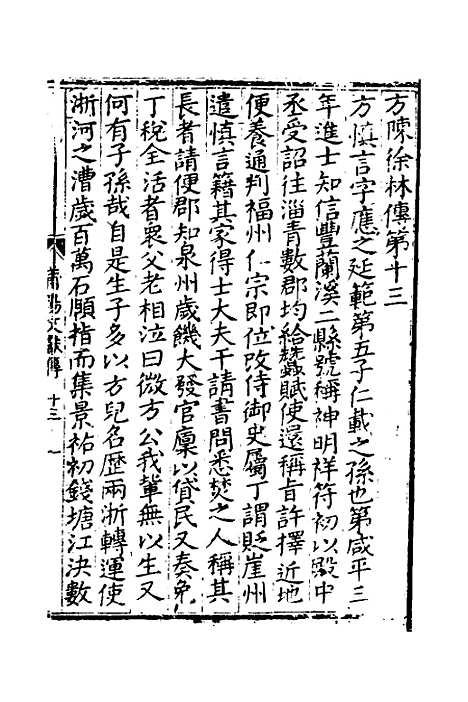 方陳徐林傳第十三
方慎言字應之延範第五子仁載之孫也第咸平三
年進士知信豐蘭溪二縣號稱神明祥符初以殿中
丞受詔往淄青數郡均給蠶賦使還稱旨許擇近地
便養通判福州仁宗即位改侍御史屬丁謂貶崖州
遣慎言籍其家得士大夫干請書問悉焚之人稱其
長者請便郡知泉州歲饑大發官廩以貸民又奏免
丁稅全活者衆父老相泣曰微方公我輩無以生又
何有子孫哉自是生子多以方兒名歷兩浙轉運使
浙河之漕歲百萬石願指而集景祐初錢塘江決數
莆陽文獻傳 十三 一